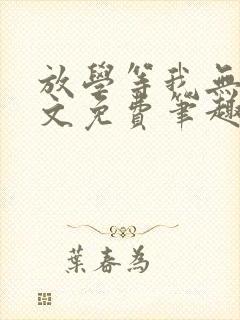 放學等我無
文免費筆趣
葉春為